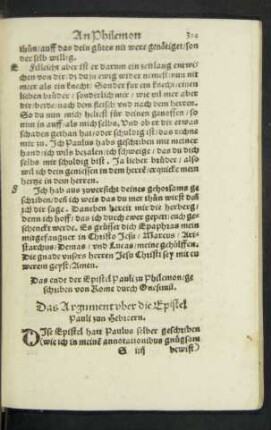 An Philemon
thün/ auff das dein gůtes nit were genötiget/ son
der selb willig.
Filleicht aber ist er darumb ein zeitlang entwi
chen von dir/ dz du jn ewig wider nemest/ nun nit
meer als ein knecht/ Sonder fur ein knecht/ einen
lieben brůder/ sonderlich mir/ wie vil mer aber
dir/ beide/ nach dem fleisch vnd nach dem herren.
So du nun mich helest für deinen genossen/ so
nim jn auff als mich selbs. Vnd ob er dir etwas
schaden gethan hat/ oder schuldig ist/ das rechne
mir zů. Ich Paulus habs geschriben mit meiner
hand/ ich wils bezalen/ ich schweige/ das du dich
selbs mir schuldig bist. Ja lieber brůder/ also
wil ich dein geniessen in dem herrē/ erquicke mein
hertze in dem herren.
Ich hab aus zuversicht deines gehorsams ge
schriben/ deñ ich weis das du mer thůn wirst daß
ich dir sage. Daneben bereit mir die herberg/
denn ich hoff/ das ich durch ewer gepett/ euch ge-
schenckt werde. Es grüsset dich Epaphras mein
mitgefangner in Christo Jesu/ Marcus/ Ari
starchus/ Demas/ vnd Lucas/ meine gehülffen.
Die gnade vnsers herren Jesu Christi sey mit eu
werem geyst/ Amen.
Das ende der Epistel Pauli zu Philemon/ ge
schriben von Rome durch Onesimū.
Das Argument vber die Epistel
Pauli zun Hebreern.
DIse Epistel hatt Paulus selber geschriben
(wie ich in meinē annotationibus gnůgsam
bewist)